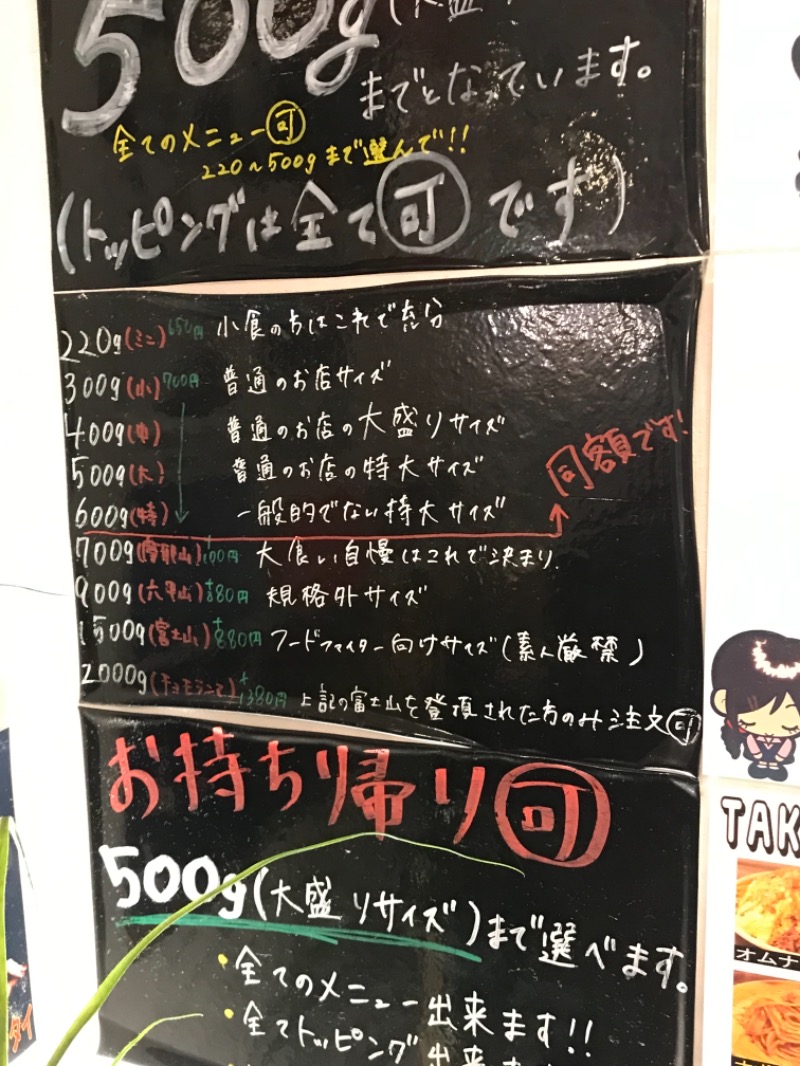 500g(大盛
までとなっています。
全てのメニュー可
220〜500gまで選んで!!
(トッピングは全て可です)
220g(ミニ)650円 小食の方はこれで充分
300g(小)700円 普通のお店サイズ
400g(中) 普通のお店の大盛りサイズ
500g(大) 普通のお店の特大サイズ
600g(特) 一般的でない特大サイズ
同額です!
700g(摩耶山)+100円 大食い自慢はこれで決まり.
900g(六甲山)+380円 規格外サイズ
1500g(富士山)+880円 フードファイター向けサイズ(素人厳禁)
2000g(チョモランマ)+1380円 上記の富士山を登頂された方のみ注文可
お持ち帰り可
500g(大盛りサイズ)まで選べます。
・全てのメニュー出来ます!!
・全てトッピング出来
TAK
オムナ
タイ